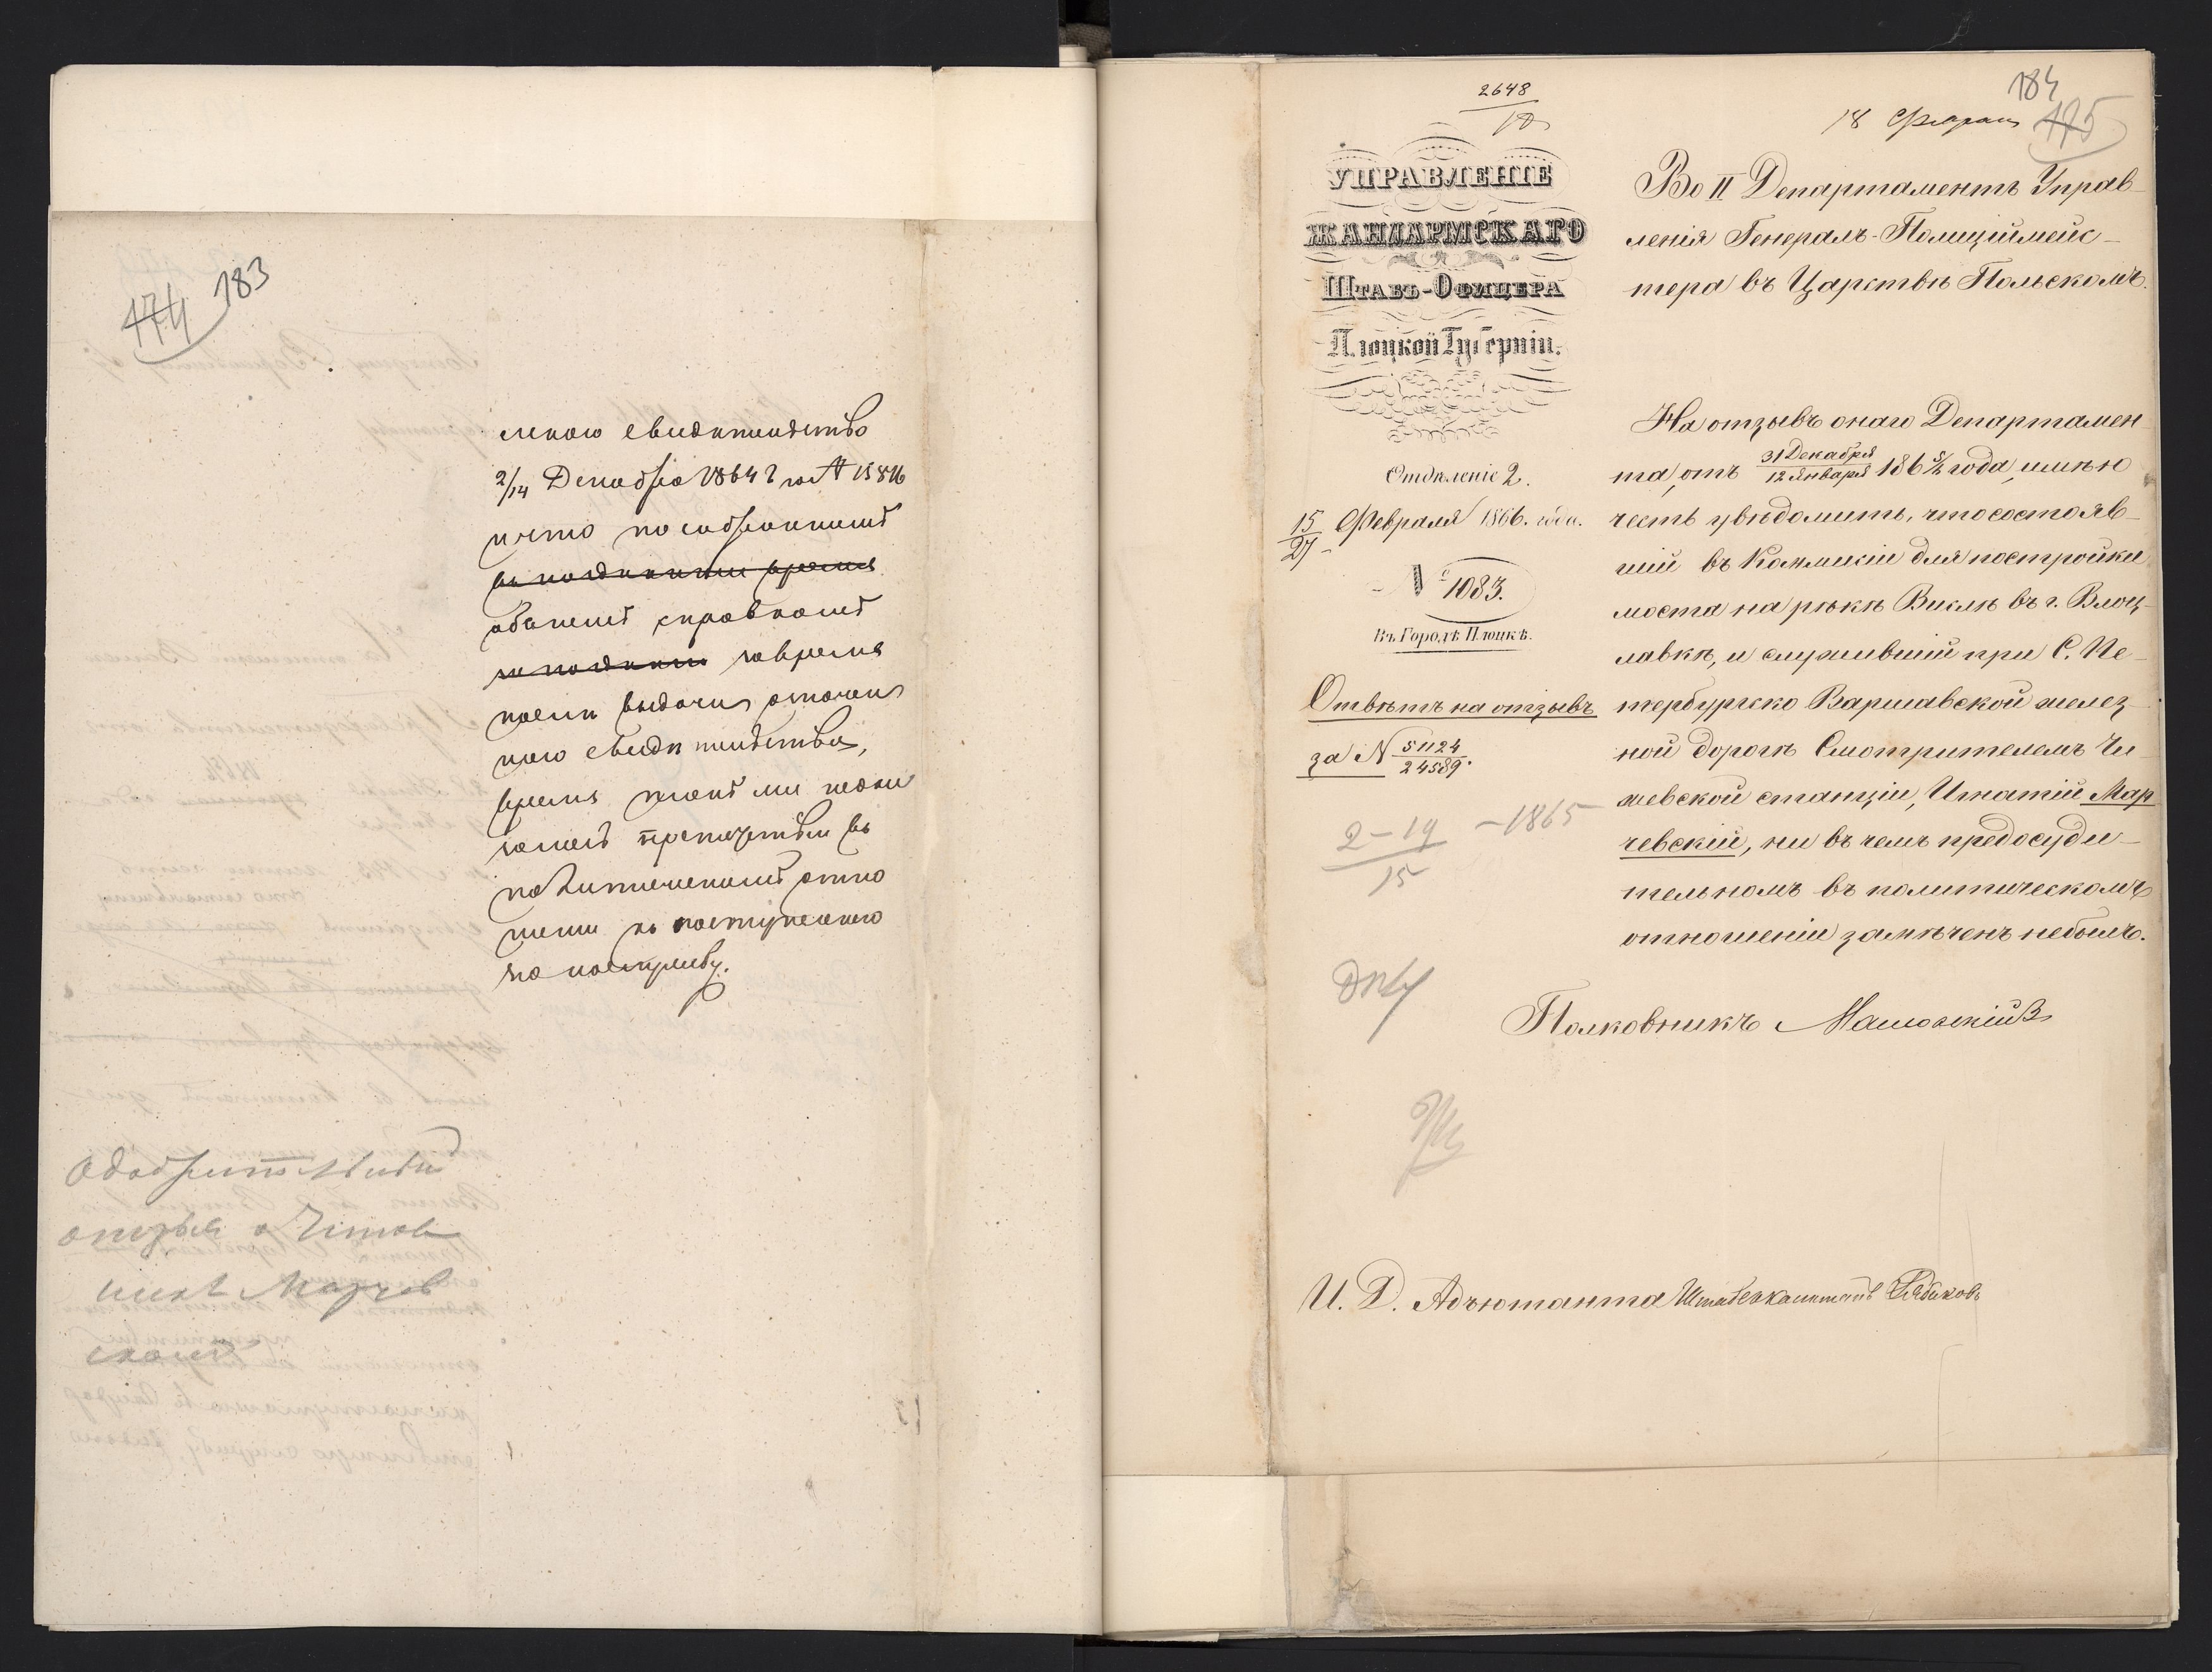 183
174
леннаго свидѣтельства
2/14 Декабря 1864 г за № 15816
и что по собраннымъ
въ последнѣе время
объ немъ справкамъ
за время
послѣ выдачи означен
наго свидѣтельства,
препятствiй въ
политическомъ отно
шенiи къ поступленiю
на
Одобрительный
отзывъ о
Марчев
скомъ
2648
10
18 Февраля
184
175
УПРАВЛЕНІЕ
ЖАНДАРМСКАГО
Штабъ-Офицера
Плоцкой Губерніи.
Отдѣленіе 2.
15/27 Февраля 1866. года.
№ 1083.
Въ Городѣ Плоцкѣ.
Отвѣтъ на отзывъ
за № 51124/24589.
2-19 -1865
15
Во II Департаментъ Управ-
ленія Генералъ-Полиціймейс-
тера въ Царствѣ Польскомъ.
На отзывъ онаго Департамен
та, отъ 31 Декабря/12 Января 186 5/6 года, имѣю
честь увѣдомить, что состояв-
шій въ Коммисіи для постройки
моста на рѣкѣ Вислѣ въ г. Влоц-
лавкѣ, и служившій при С. Пе-
тербургско Варшавской желез
ной дорогѣ Смотрителемъ Чи
жевской станціи, Игнатій Мар
чевскій, ни въ чемъ предосуди-
тельномъ въ политическомъ
отношеніи замѣченъ небылъ.
Полковникъ
И. Д. Адъютанта Штабскапитанъ